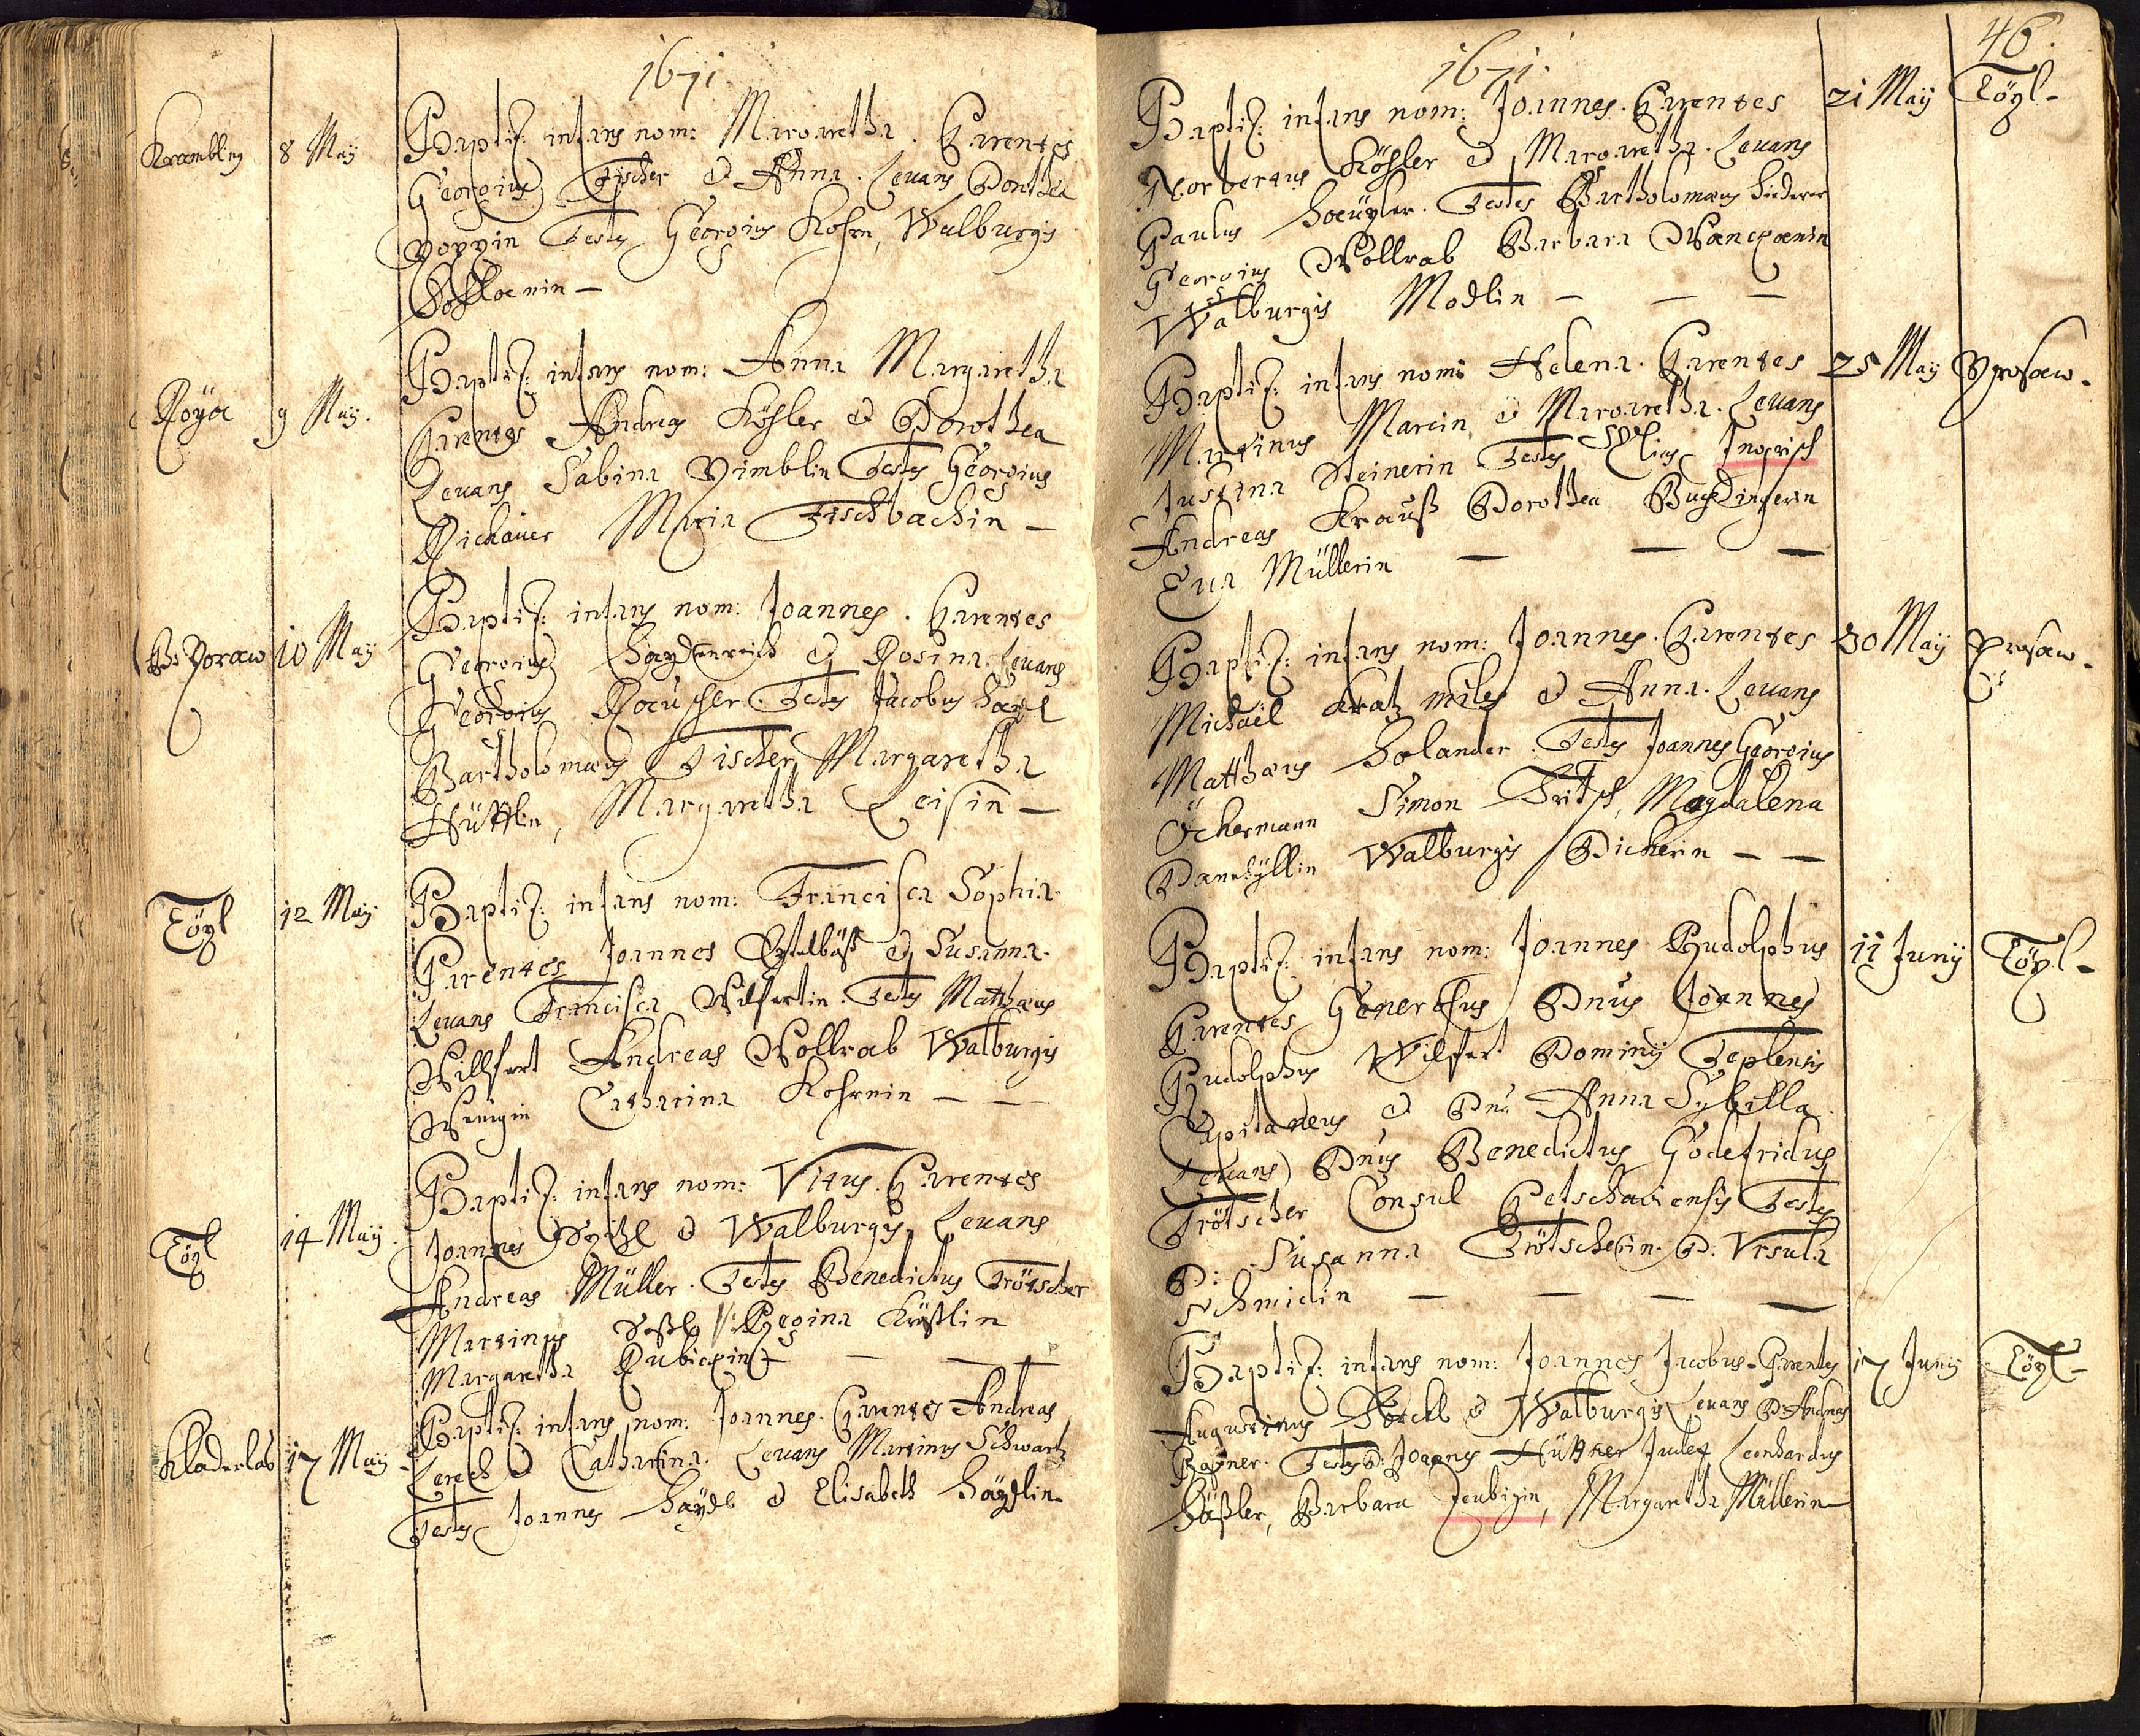 1671
Krambling 8 May Baptiz: infans nom: Margaretha. Parentes
Georgius Fischer et Anna. Levans Dorothea
Testes Georgius Kohrn, Walburgis
Röya 9 May. Baptiz: infans nom: Anna Margaretha
Parentes Andreas Köhler et Dorothea
Levans Sabina Pimblin Testes Georgius
Richauer Maria Fischbachin —
10 May Baptiz: infans nom: Joannes. Parentes
Georgius Haydenreich et Rosina. Levans
Georgius Testes Jacobus Haydl
Bartholomæus Fischer, Margaretha
Hüttlin, Margaretha Leisin —
Töpl 12 May Baptiz: infans nom: Francisca Sophia.
Parentes Joannes et Susanna.
Levans Francisca Wilfertin. Testes Matthæus
Willfert Andreas Vollrab Walburgis
Catharina Kohrnin — —
Töpl 14 May. Baptiz: infans nom: Vitus. Parentes
Joannes et Walburgis, Levans
Andreas Müller. Testes Benedictus Trötscher
Martinus Regina
Margaretha — —
Kladerlas 17 May Baptiz: infans nom: Joannes. Parentes Andreas
Lerch et Catharina. Levans Martinus Schwartz
Testes Joannes Haydl et Elisabeth Haydlin
46.
1671
Baptiz: infans nom: Joannes. Parentes 21 May Töpl-
Norbertus Köhler et Margaretha. Levans
Paulus Testes Bartholomæus
Georgius Vollrab Barbara
Walburgis Modlin — — —
Baptiz: infans nom: Helena. Parentes 25 May Prosaw.
Martinus Marcin et Margaretha. Levans
Justina Steinerin Testes Elias Ingrisch
Andreas Krauß Dorothea
Eua Müllerin — — —
Baptiz: infans nom: Joannes. Parentes 30 May Prosaw.
Michaël Kratz miles et Anna. Levans
Matthæus Holander. Testes Joannes Georgius
Öckermann Simon Fritsch, Magdalena
Walburgis Bickerin — —
Baptiz: infans nom: Joannes Rudolphus 11 Junij Töpl-
Parentes Generosus Dnus Joannes
Rudolphus Wilfert Dominij Teplensis
Capitaneus et Dna Anna Sybilla.
Levans Dnus Benedictus Godefridus
Trötscher Consul Petschaviensis Testes
D: Susanna Trötscherin. D. Ursula
Schmidin — — — —
Baptiz: infans nom: Joannes Jacobus. Parentes 17 Junij Töpl-
Augustinus et Walburgis Levans D. Andreas
Payner. Testes D: Joannes Hüttner Judex Leonhardus
Häßler, Barbara Margaretha Müllerin